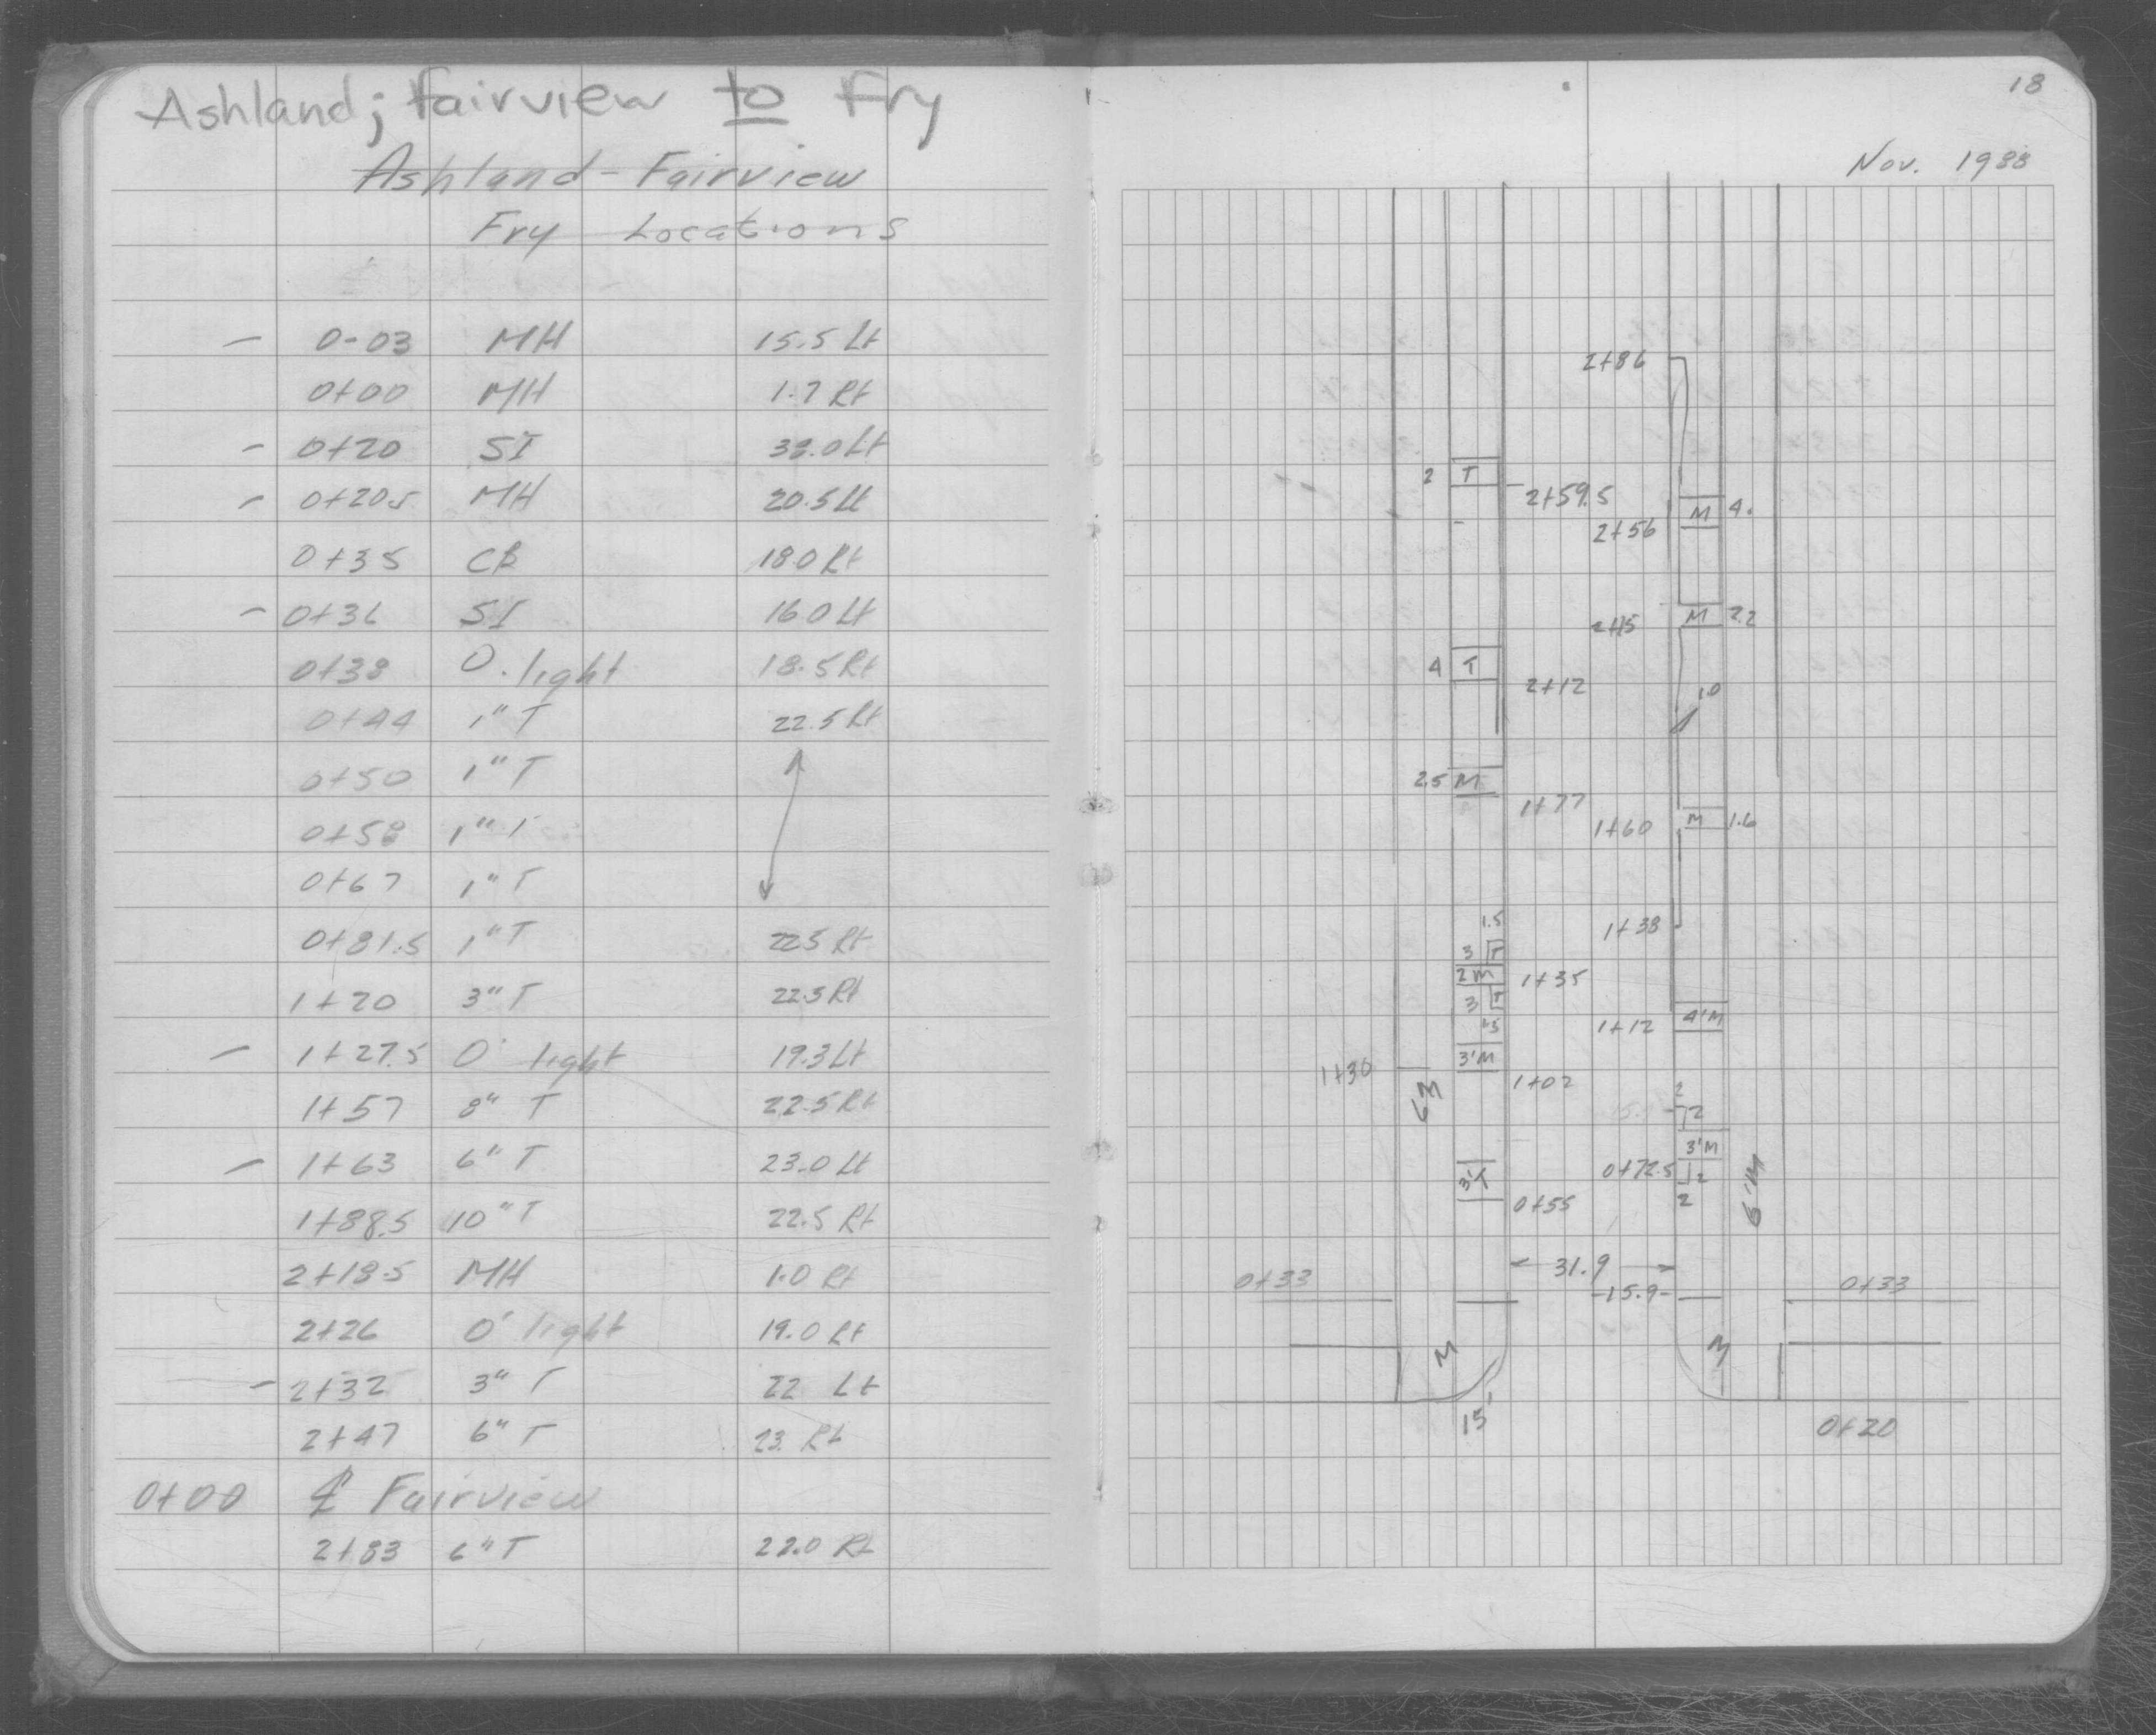 Ashland; Fairview to Fry
Ashland - Fairview
Fry Locations
- 0-03 MH 15.5 Lt
0+00 MH 1.7 Rt
- 0+20 SI 38.0 Lt
- 0+20.5 MH 20.5 Lt
0+35 CB 18.0 Rt
- 0+36 SI 16.0 Lt
0+38 O. light 18.5 Rt
0+44 1" T 22.5 Rt
0+50 1" T
0+58 1" T
0+67 1" T
0+81.5 1" T 22.5 Rt
1+20 3" T 22.5 Rt
- 1+27.5 O' light 19.3 Lt
1+57 8" T 22.5 Rt
- 1+63 6" T 23.0 Lt
1+88.5 10" T 22.5 Rt
2+18.5 MH 1.0 Rt
2+26 O' light 19.0 Rt
- 2+32 3" T 22 Lt
2+47 6" T 23 Rt
0+00 ℄ Fairview
2+83 6" T 22.0 Rt
18
Nov. 1988
2+86
2 T 2+59.5
M 4.
2+56
M 2.2
4 T
2+12
1.0
2.5 M
1+77
1+60 M 1.6
1.5
3 T 1+38
2 M 1+35
3 T
1.5 1+12 4'M
3'M
1+30 1+02
6 M
2
2
3'M
3'T 0+72.5 2
0+55 2
6'M
31.9
0+33 15.9 0+33
M M
15'
0+20